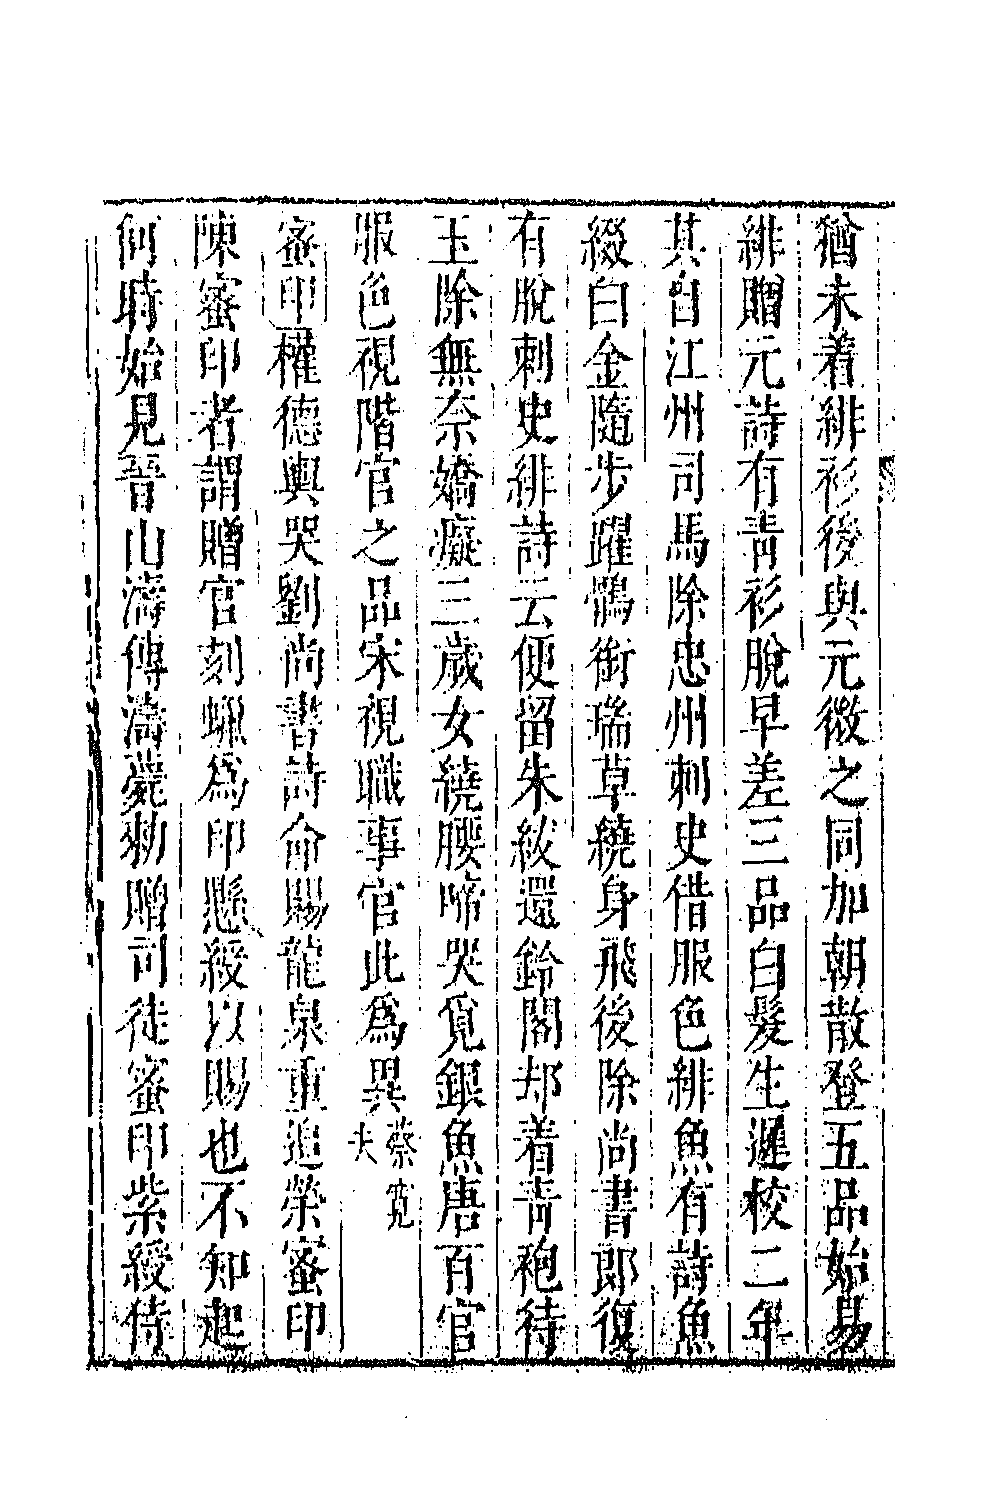 猶未着緋衫後與元微之同加朝散登五品始易
緋贈元詩有青衫脫早差三品白髮生遲校二年
其自江州司馬除忠州刺史借服色緋魚有詩魚
綴白金隨步躍鶻銜瑞草繞身飛後除尚書郎復
有脫刺史緋詩云便留朱紱還鈴閣却着青袍待
玉除無奈嬌癡三歲女繞腰啼哭覓銀魚唐百官
服色視階官之品宋視職事官此爲異蔡寬夫
蜜印權德輿哭劉尚書詩命賜龍泉重追榮蜜印
陳蜜印者謂贈官刻蠟爲印懸綬以賜也不知起
何時始見晉山濤傳濤薨勑贈司徒蜜印紫綬侍